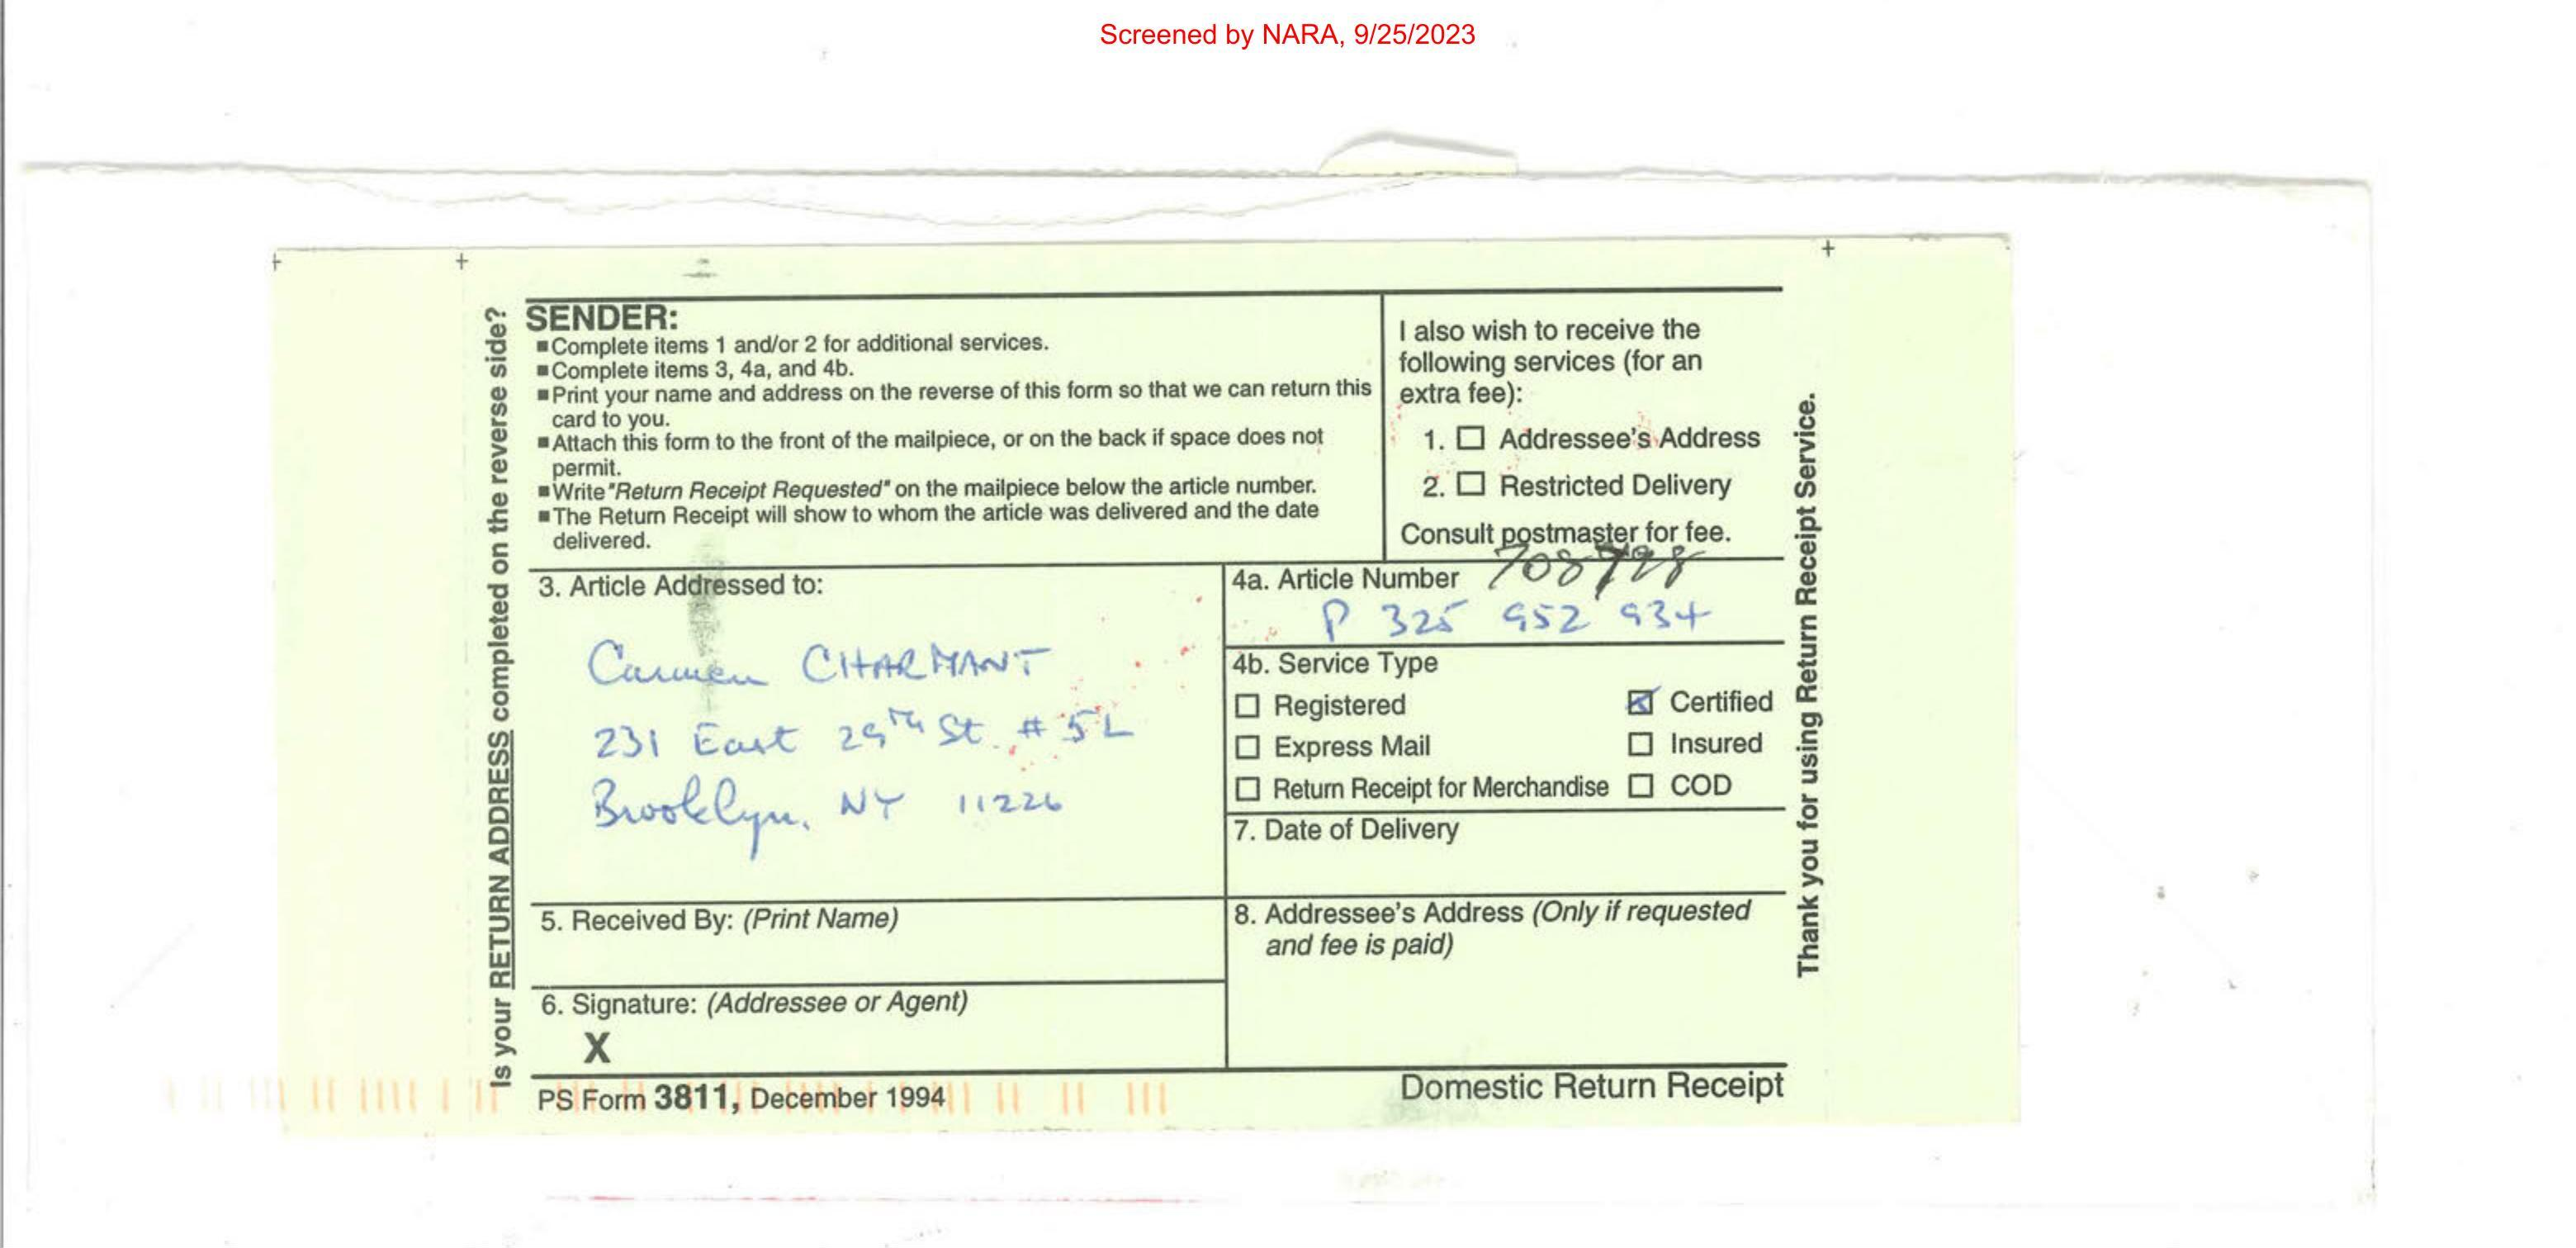 Screened by NARA, 9/25/2023
Is your RETURN ADDRESS completed on the reverse side?
SENDER:
■Complete items 1 and/or 2 for additional services.
■Complete items 3, 4a, and 4b.
■Print your name and address on the reverse of this form so that we can return this
card to you.
■Attach this form to the front of the mailpiece, or on the back if space does not
permit.
■Write "Return Receipt Requested" on the mailpiece below the article number.
■The Return Receipt will show to whom the article was delivered and the date
delivered.
I also wish to receive the
following services (for an
extra fee):
1. ☐ Addressee's Address
2. ☐ Restricted Delivery
Consult postmaster for fee.
3. Article Addressed to:
Carmen CHARMANT
231 East 29th St. #5L
Brooklyn, NY 11226
4a. Article Number
P 325 952 934
4b. Service Type
☐ Registered ☒ Certified
☐ Express Mail ☐ Insured
☐ Return Receipt for Merchandise ☐ COD
7. Date of Delivery
5. Received By: (Print Name)
8. Addressee's Address (Only if requested
and fee is paid)
6. Signature: (Addressee or Agent)
X
PS Form 3811, December 1994
Domestic Return Receipt
Thank you for using Return Receipt Service.